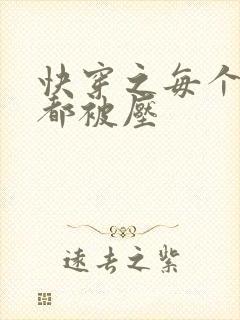 快穿之每个
都被壓
遠去之紫